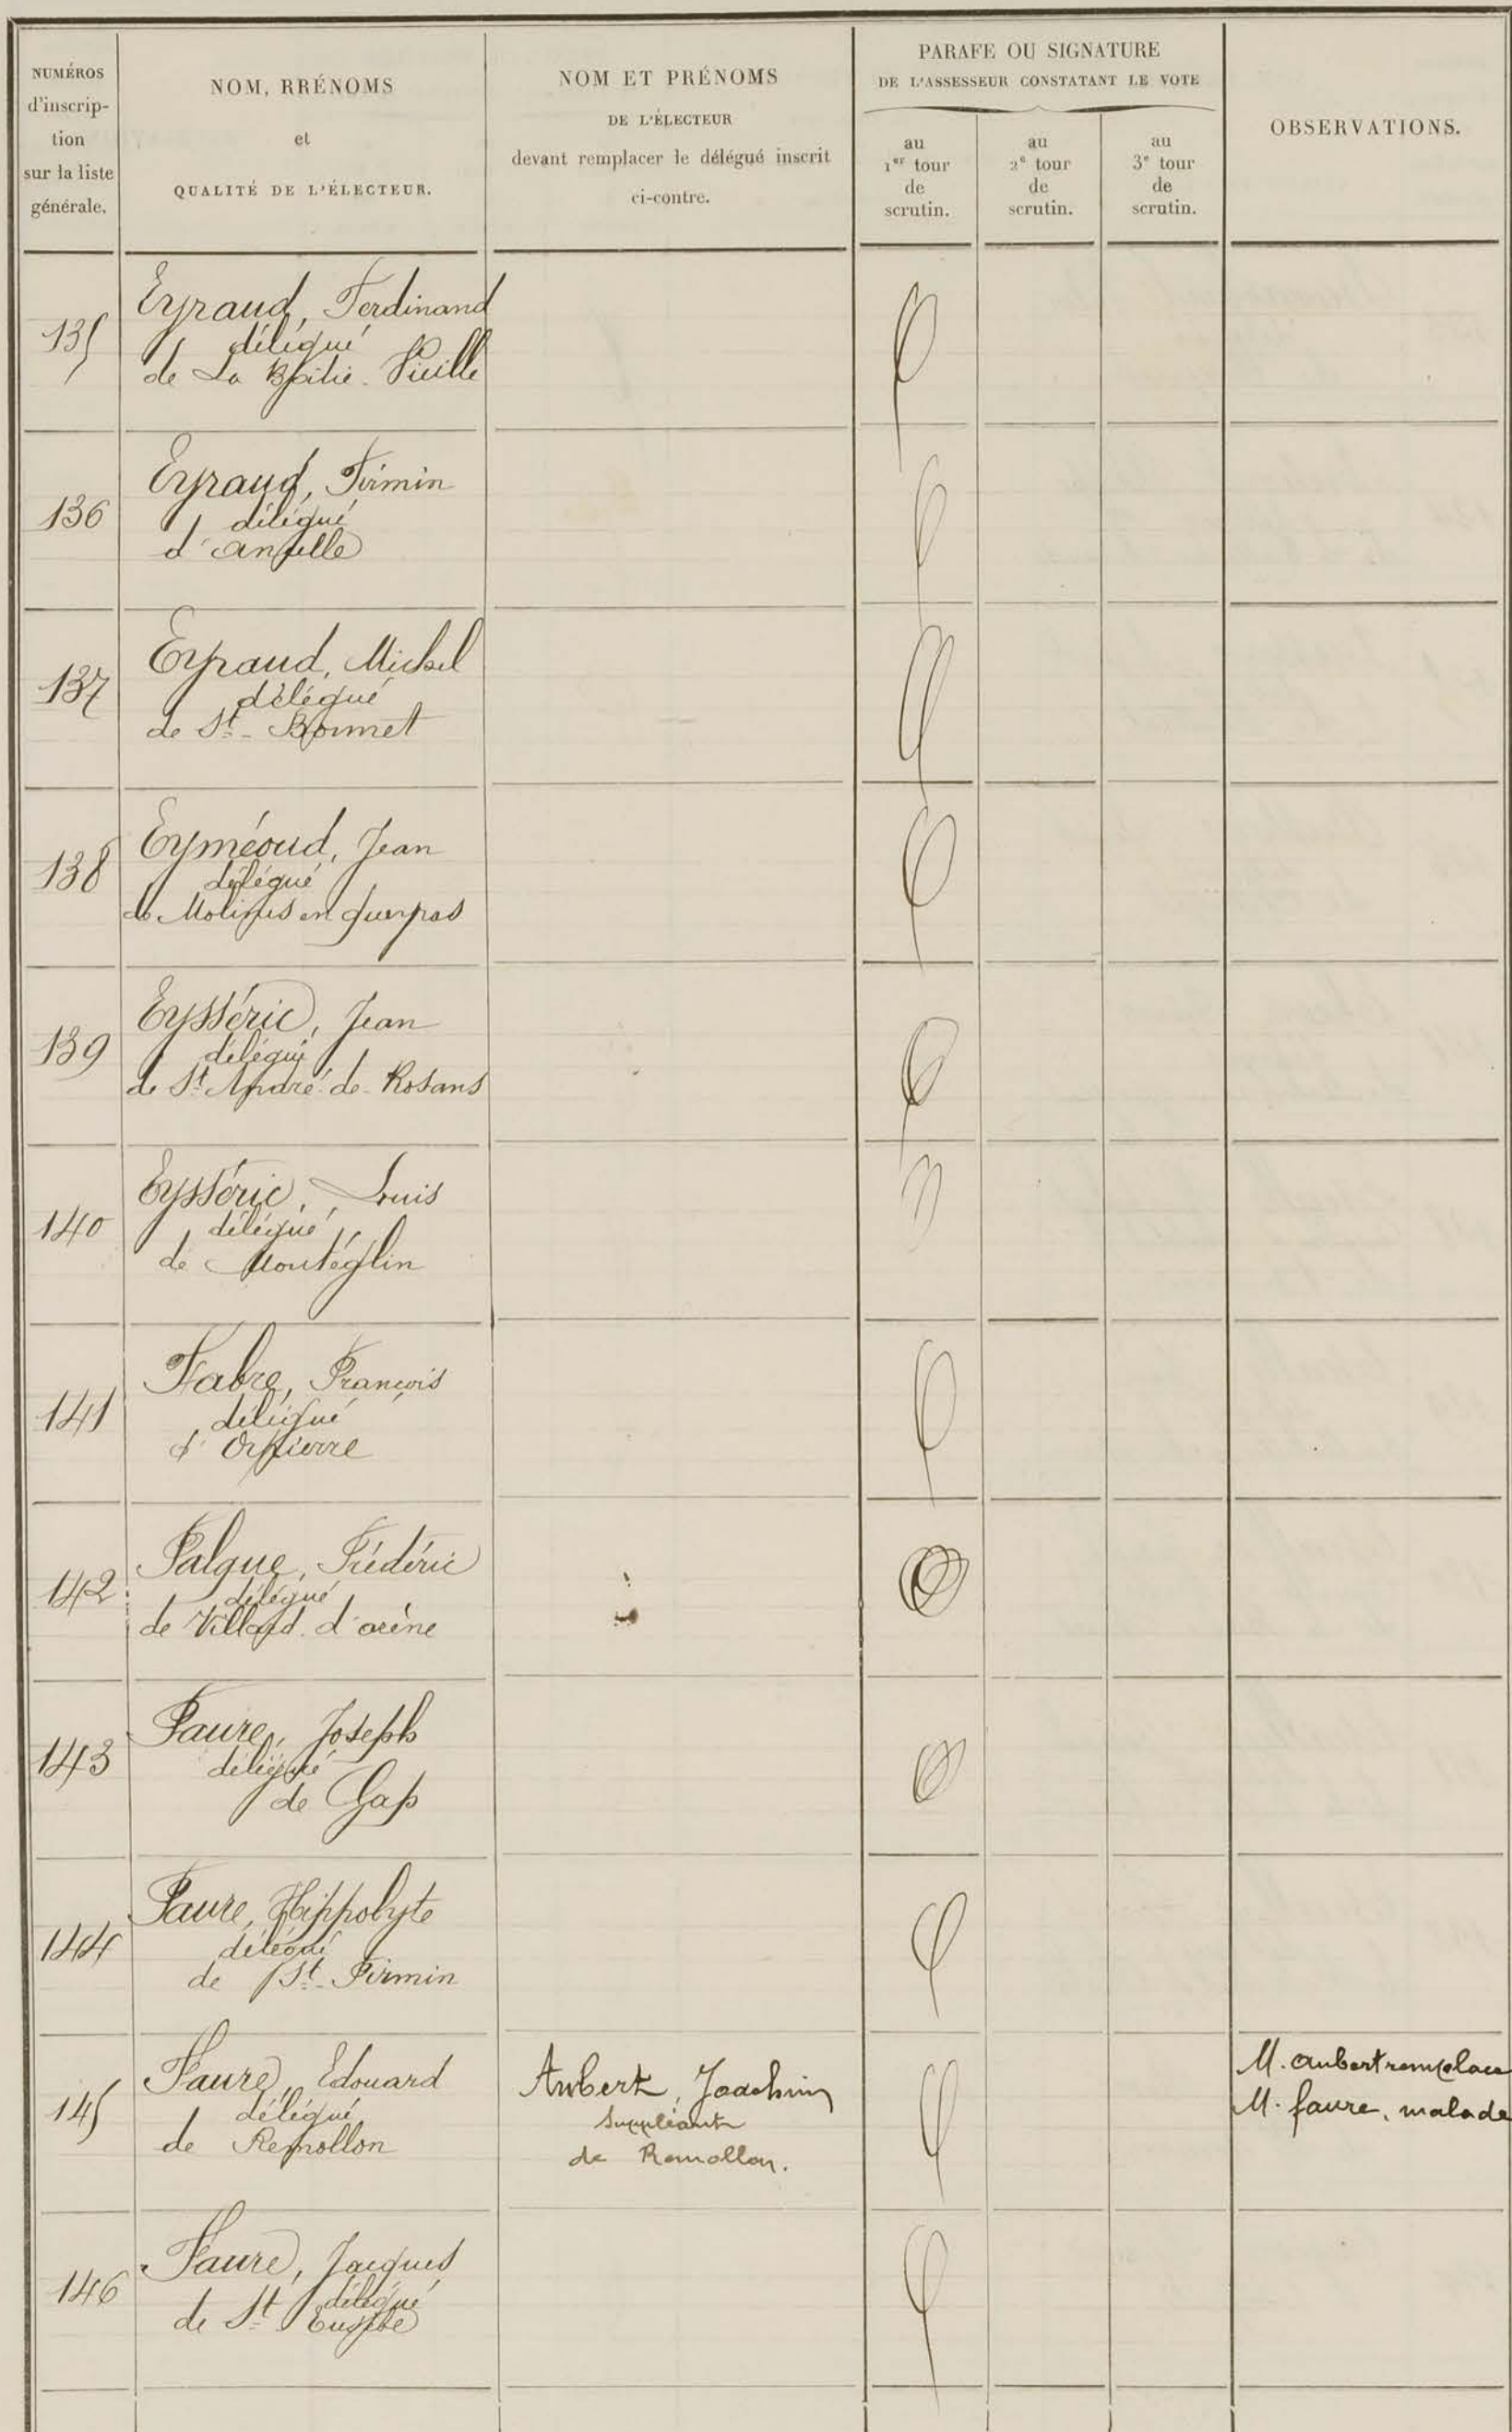 NUMÉROS
d'inscrip-
tion
sur la liste
générale.
NOM, RRÉNOMS
et
QUALITÉ DE L'ÉLECTEUR.
NOM ET PRÉNOMS
DE L'ÉLECTEUR
devant remplacer le délégué inscrit
ci-contre.
PARAFE OU SIGNATURE
DE L'ASSESSEUR CONSTATANT LE VOTE
au
1er tour
de
scrutin.
au
2e tour
de
scrutin.
au
3e tour
de
scrutin.
OBSERVATIONS.
135
Eyraud, Ferdinand
délégué
de La Bâtie-Vieille
136
Eyraud, Firmin
délégué
d'ancelle
137
Eyraud, Michel
délégué
de St-Bonnet
138
Eyméoud, Jean
délégué
de Molines en queyras
139
Eysséric, Jean
délégué
de St André de Rosans
140
Eysséric, Louis
délégué
de Montéglin
141
Fabre, François
délégué
d'Orpierre
142
Falque, Frédéric
délégué
de Villard d'arène
143
Faure, Joseph
délégué
de Gap
144
Faure, Hippolyte
délégué
de St-Firmin
145
Faure, Edouard
délégué
de Remollon
Aubert, Joachim
suppléant
de Remollon.
M. aubert remplace
M. faure, malade
146
Faure, Jacques
délégué
de St Eusèbe